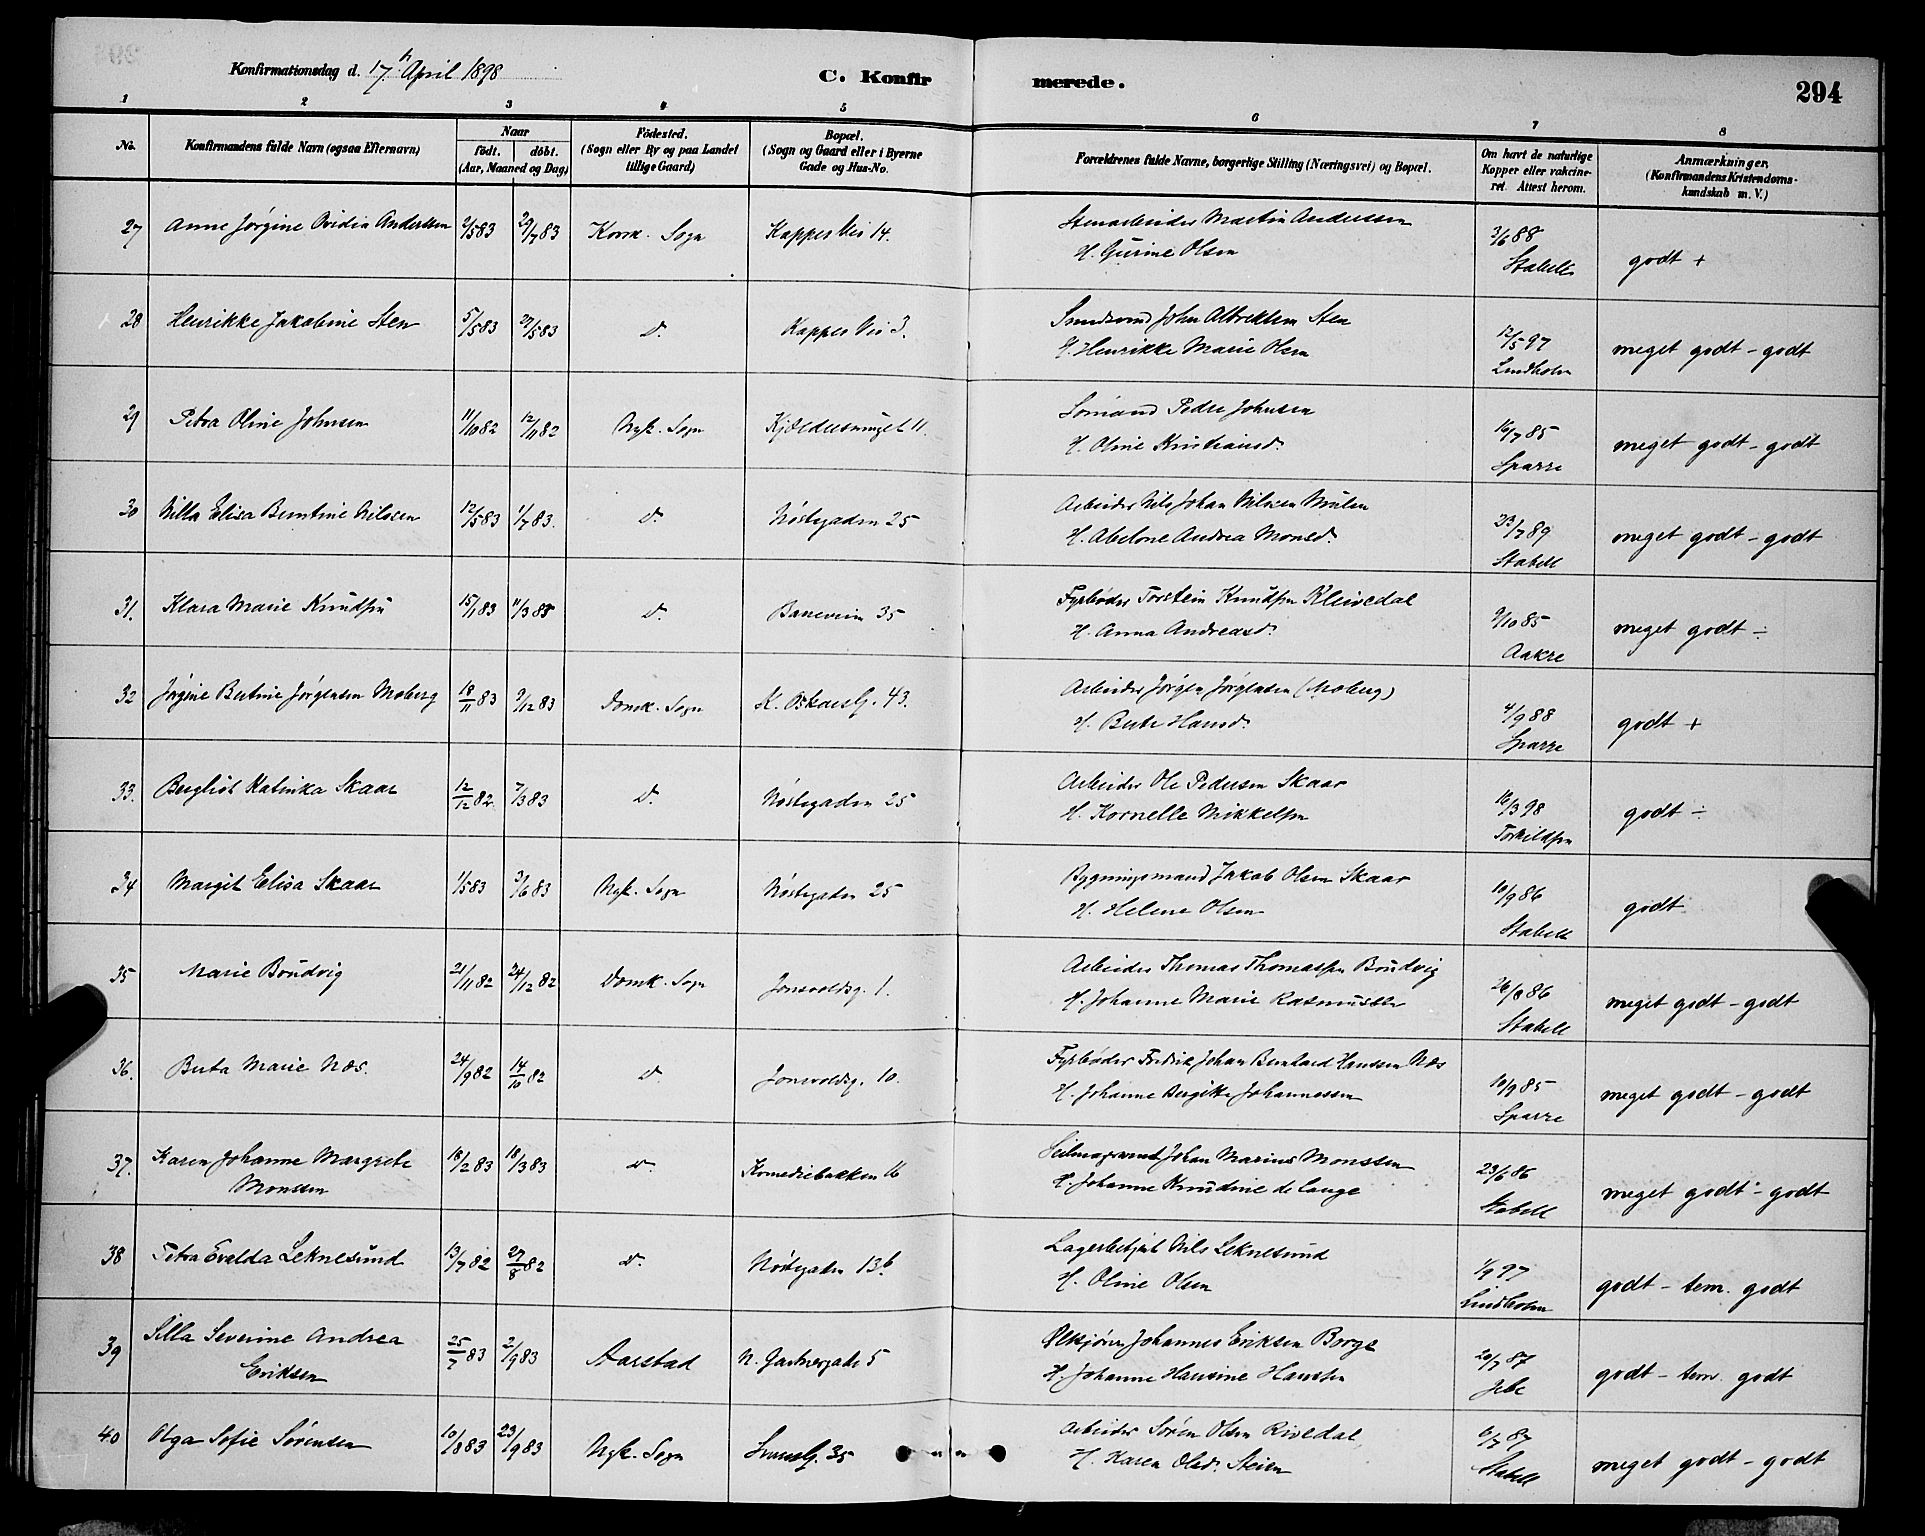 Konfirmationsdag d. 17de April 1898
C. Konfirmerede.
294
1 2 3 4 5 6 7 8
No.
Konfirmandens fulde Navn (ogsaa Efternavn)
Naar
födt. döbt.
(Aar, Maaned og Dag)
Födested.
(Sogn eller By og paa Landet
tillige Gaard)
Bopæl.
(Sogn og Gaard eller i Byerne
Gade og Hus-No.
Forældrenes fulde Navne, borgerlige Stilling (Næringsvei) og Bopæl.
Om havt de naturlige
Kopper eller vakcine-
ret. Attest herom.
Anmærkninger,
(Konfirmandens Kristendoms-
kundskab m. V.)
27 Anne Jørgine Ovidia Andersen 2/5 83 29/7 83 Korsk. Sogn Kappes Vei 14. Stenarbeider Martin Andersen 3/6 88
H. Gurine Olsen Stabell godt +
28 Henrikke Jakobine Sten 5/5 83 27/5 83 D. Kappes Vei 3. John Albrektsen Sten 12/5 97
H. Henrikke Marie Olsen Lindholm meget godt - godt
29 Petra Oline Johnsen 11/10 82 12/11 82 Nyk. Sogn 11. Sømand Peder Johnsen 16/7 85
H. Oline Kristiansd. Sparre meget godt - godt
30 Nilla Elisa Berntine Nilssen 12/5 83 1/7 83. D. Nøstegaden 25 Arbeider Nils Johan Nilssen Mulen 23/7 89
H. Abelone Andrea Monsd. Stabell meget godt - godt
31. Klara Marie Knudsen 15/1 83 11/3 83 D. Baneveien 35 Fyrbøder Torstein Knudsen Kleivedal 9/10 85
H. Anna Andreasd. Aakre meget godt ÷
32 Jørgine Bertine Jørgensen Moberg 18/11 83 9/12 83 Domk. Sogn K. Oskarsg. 43. Arbeider Jørgen Jørgensen (Moberg) 4/9 88
H. Berte Hansd. Sparre godt +
33. Bergliot Katinka Skaar 12/12 82 7/3 83 D. Nøstegaden 25 Arbeider Ole Pedersen Skaar 16/3 98
H. Kornelle Mikkelsen Torkildsen godt ÷
34 Margit Elisa Skaar 1/5 83 3/6 83 Nyk. Sogn Nøstegaden 25 Bygningsmand Jakob Olsen Skaar 10/9 86
H. Helene Olsen Stabell godt
35 Marie Boudvig 21/11 82 24/12 82 Domk. Sogn Jonsvoldsg. 1. Arbeider Thomas Thomassen Boudvig 26/8 86
H. Johanne Marie Rasmussen Stabell meget godt - godt
36. Berta Marie Næs. 24/9 82 14/10 82 D. Jonsvoldsg. 10. Fyrbøder Fredrik Johan Bernhard Hanssen Næs 10/9 85
H. Johanne Bergitte Johannessen Sparre meget godt - godt
37. Karen Johanne Margrete 18/2 83 18/3 83 D. Komediebakken 16 Seilmagersvend Johan Marius Monssen 23/6 86
Monssen H. Johanne Knudine de Lange Stabell meget godt - godt
38 Petra Evalda Leknesund 13/7 82 27/8 82 D. Nøstegaden 13b. Lagerbetjent Nils Leknesund 1/9 97
H. Oline Olsen Lindholm godt - tem. godt
39 Silla Severine Andrea 25/7 83 2/9 83 Aarstad N. Gartnergade 5 Johannes Eriksen Borge 20/7 87
Eriksen H. Johanne Hansine Hansen Jebe godt - tem. godt
40 Olga Sofie Sørensen 10/8 83 23/9 83 Nyk. Sogn 35 Arbeider Søren Olsen Rivedal 6/7 87
H. Karen Olsd. Steien Stabell meget godt - godt